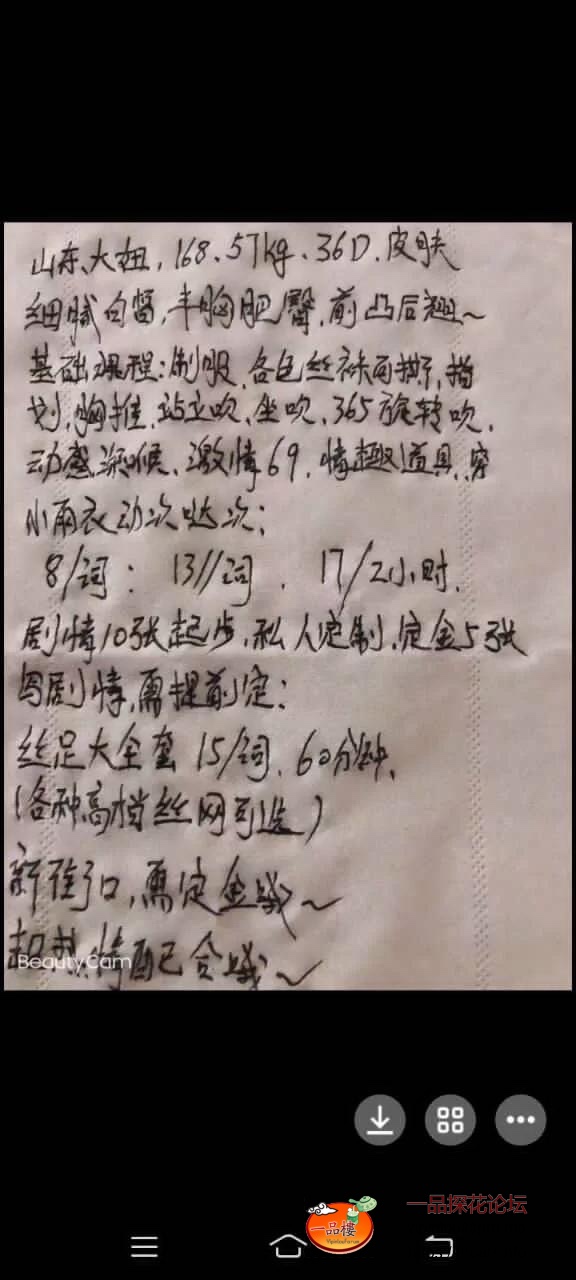 山东大妞,168、57kg、36D、皮肤
细腻白皙,丰胸肥臀,前凸后翘~
基础课程:制服、各色丝袜可撕、指
划,胸推,站立吹、坐吹、365旋转吹、
动感深喉、激情69、情趣道具、穿
小雨衣动次哒次:
8/词: 13//词、17/2小时、
剧情10张起步、私人定制、定金5张
写剧情,需提前定:
丝足大全套 15/词、60分钟、
(各种高档丝网可选)
新街口,需定金哦~
配合哦~
BeautyCam
一品楼
一品探花论坛